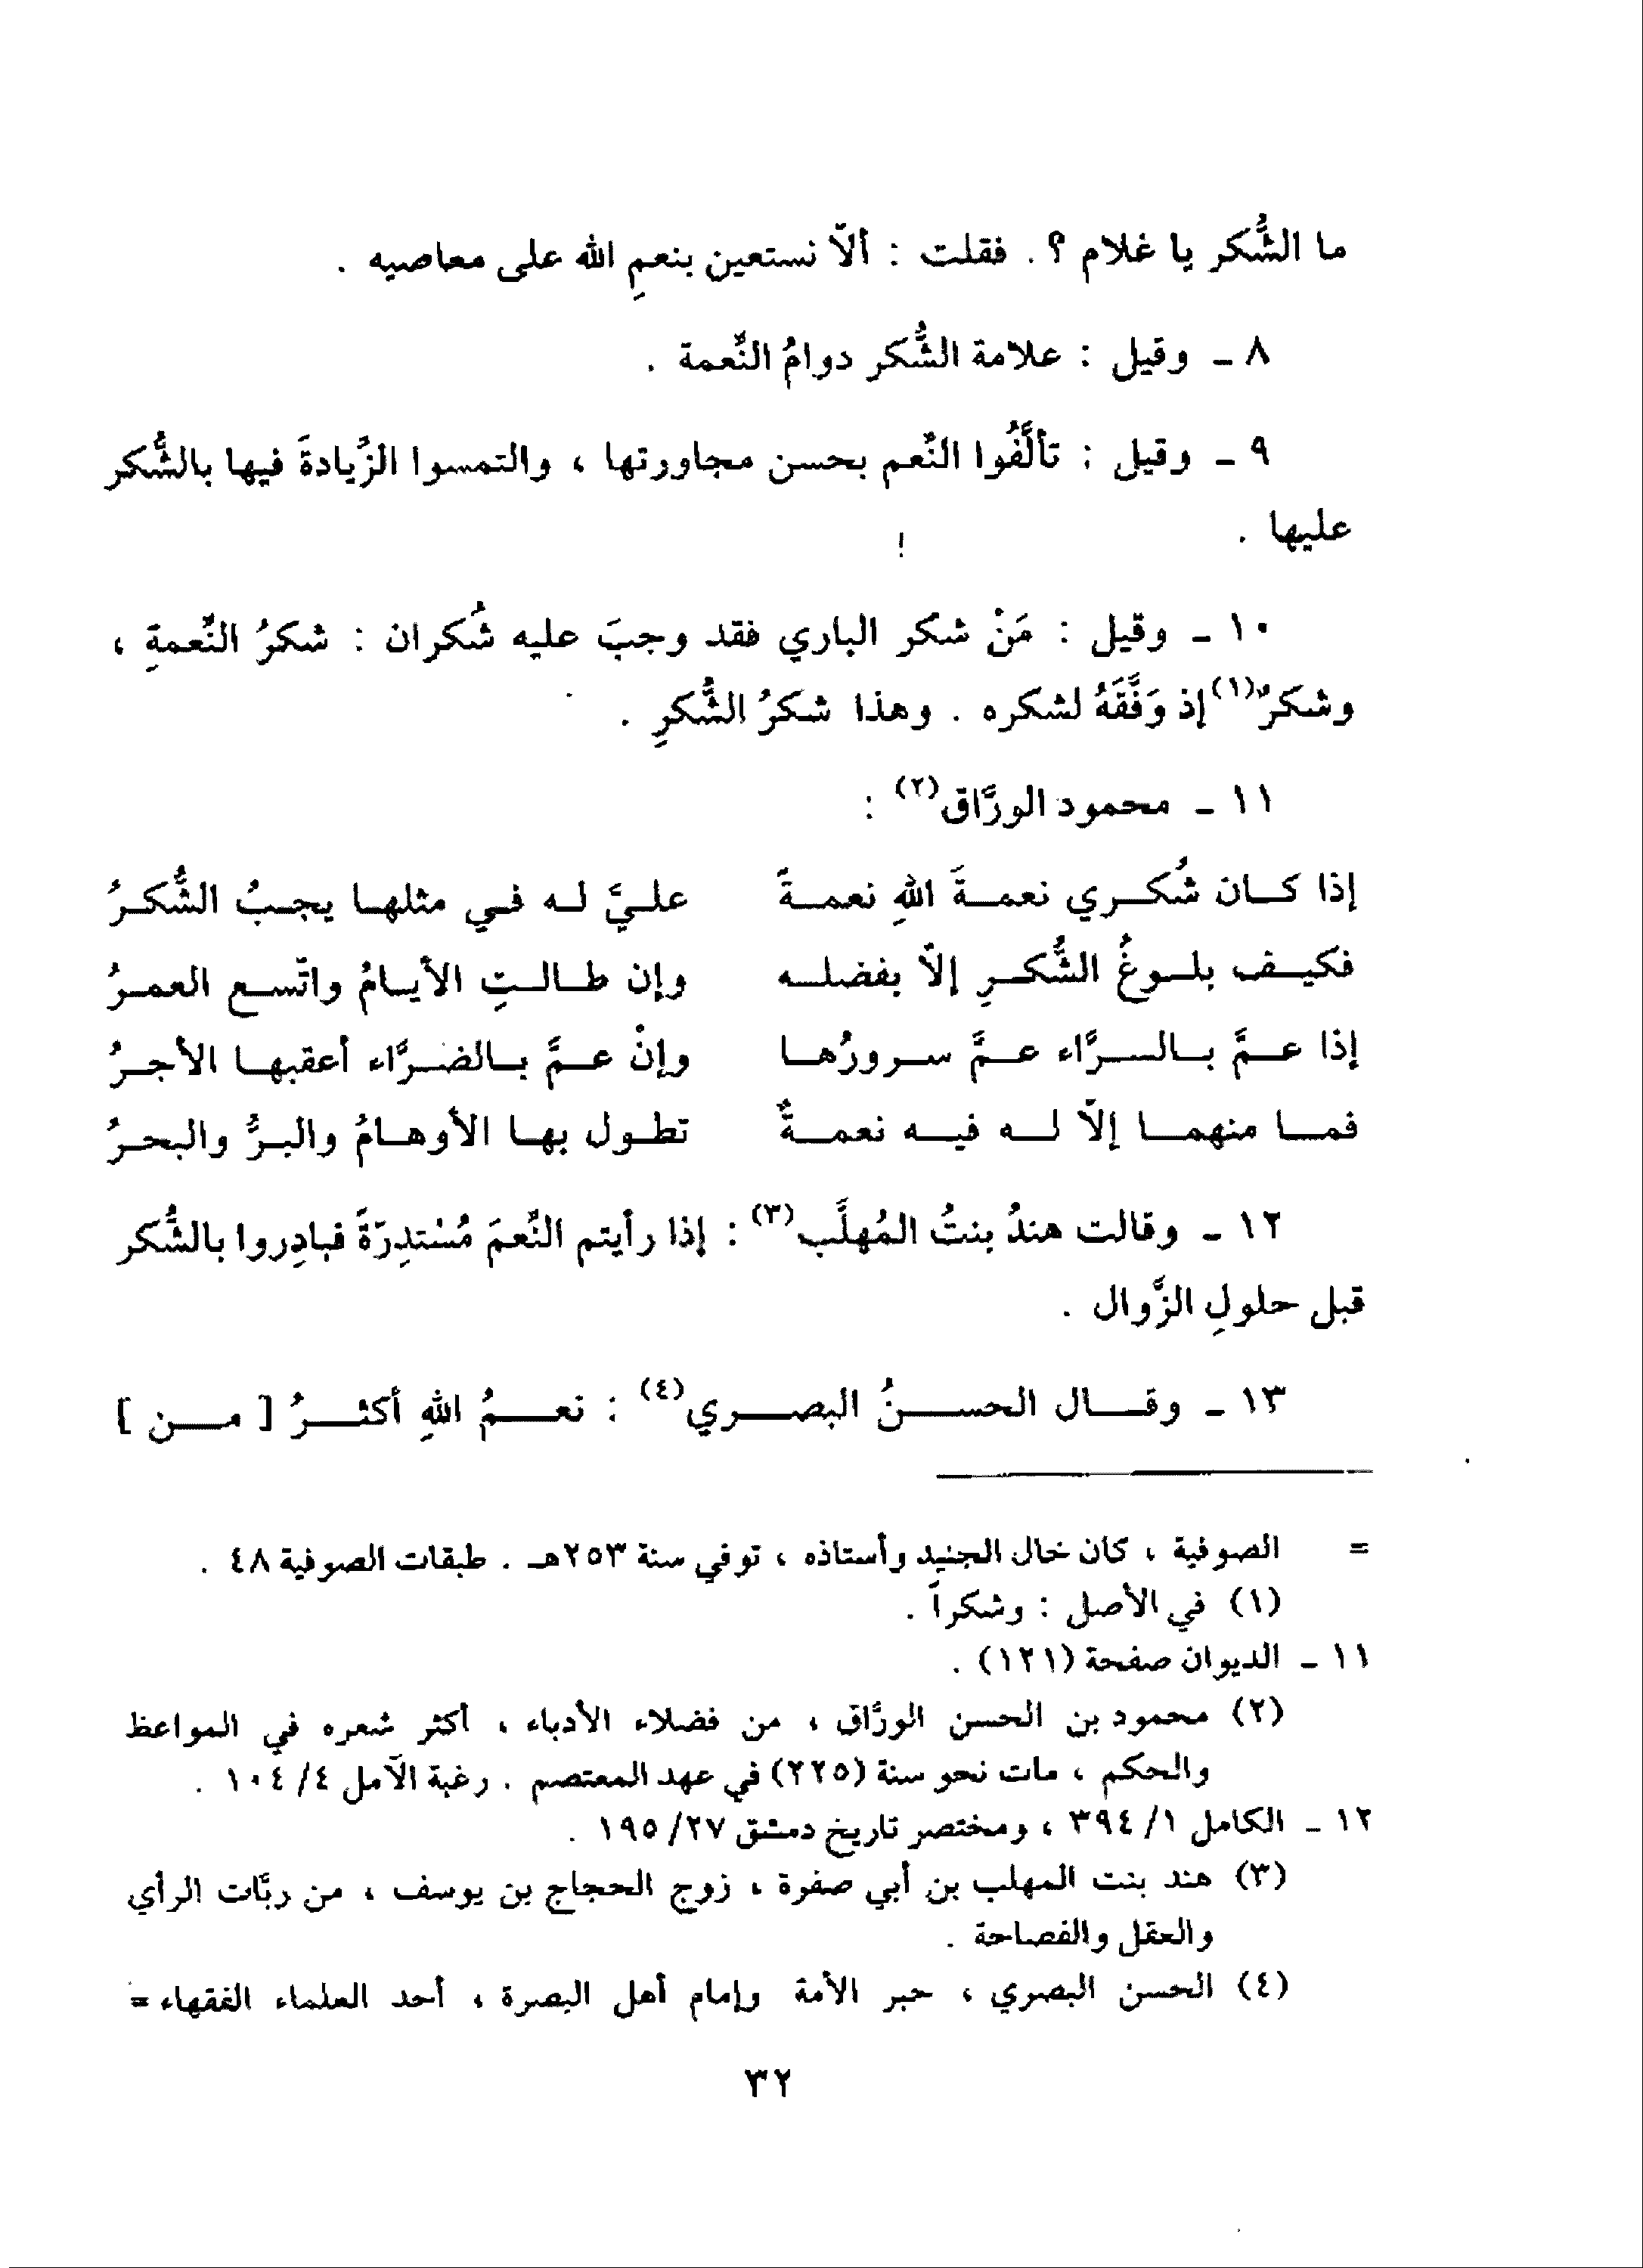 ما الشُّكر يا غلام ؟ . فقلت : ألاّ نستعين بنعمِ الله على معاصيه .
٨ ـ وقيل : علامة الشُّكر دوامُ النِّعمة .
٩ ـ وقيل : تألَّفُوا النِّعم بحسن مجاورتها ، والتمسوا الزِّيادةَ فيها بالشُّكر
عليها .
١٠ ـ وقيل : مَنْ شكر الباري فقد وجبَ عليه شُكران : شكرُ النِّعمةِ ،
وشكرٌ(١) إذ وَفَّقَهُ لشكره . وهذا شكرُ الشُّكرِ .
١١ ـ محمود الورَّاق(٢) :
إذا كان شُكري نعمةَ اللهِ نعمةً عليَّ له في مثلها يجبُ الشُّكرُ
فكيف بلوغُ الشُّكرِ إلاّ بفضله وإن طالتِ الأيامُ واتّسع العمرُ
إذا عمَّ بالسرَّاء عمَّ سرورُها وإنْ عمَّ بالضرَّاء أعقبها الأجرُ
فما منهما إلاّ له فيه نعمةٌ تطول بها الأوهامُ والبرُّ والبحرُ
١٢ ـ وقالت هندُ بنتُ المُهلَّب(٣) : إذا رأيتم النِّعمَ مُسْتدِرّةً فبادِروا بالشُّكر
قبل حلولِ الزَّوال .
١٣ ـ وقال الحسنُ البصري(٤) : نعمُ اللهِ أكثرُ [ من ]
= الصوفية ، كان خال الجنيد وأستاذه ، توفي سنة ٢٥٣هـ . طبقات الصوفية ٤٨ .
(١) في الأصل : وشكراً .
١١ ـ الديوان صفحة (١٢١) .
(٢) محمود بن الحسن الورَّاق ، من فضلاء الأدباء ، أكثر شعره في المواعظ
والحكم ، مات نحو سنة (٢٢٥) في عهد المعتصم . رغبة الآمل ٤/ ١٠٤ .
١٢ ـ الكامل ١/ ٣٩٤ ، ومختصر تاريخ دمشق ٢٧/ ١٩٥ .
(٣) هند بنت المهلب بن أبي صفرة ، زوج الحجاج بن يوسف ، من ربّات الرأي
والعقل والفصاحة .
(٤) الحسن البصري ، حبر الأمة وإمام أهل البصرة ، أحد العلماء الفقهاء =
٣٢